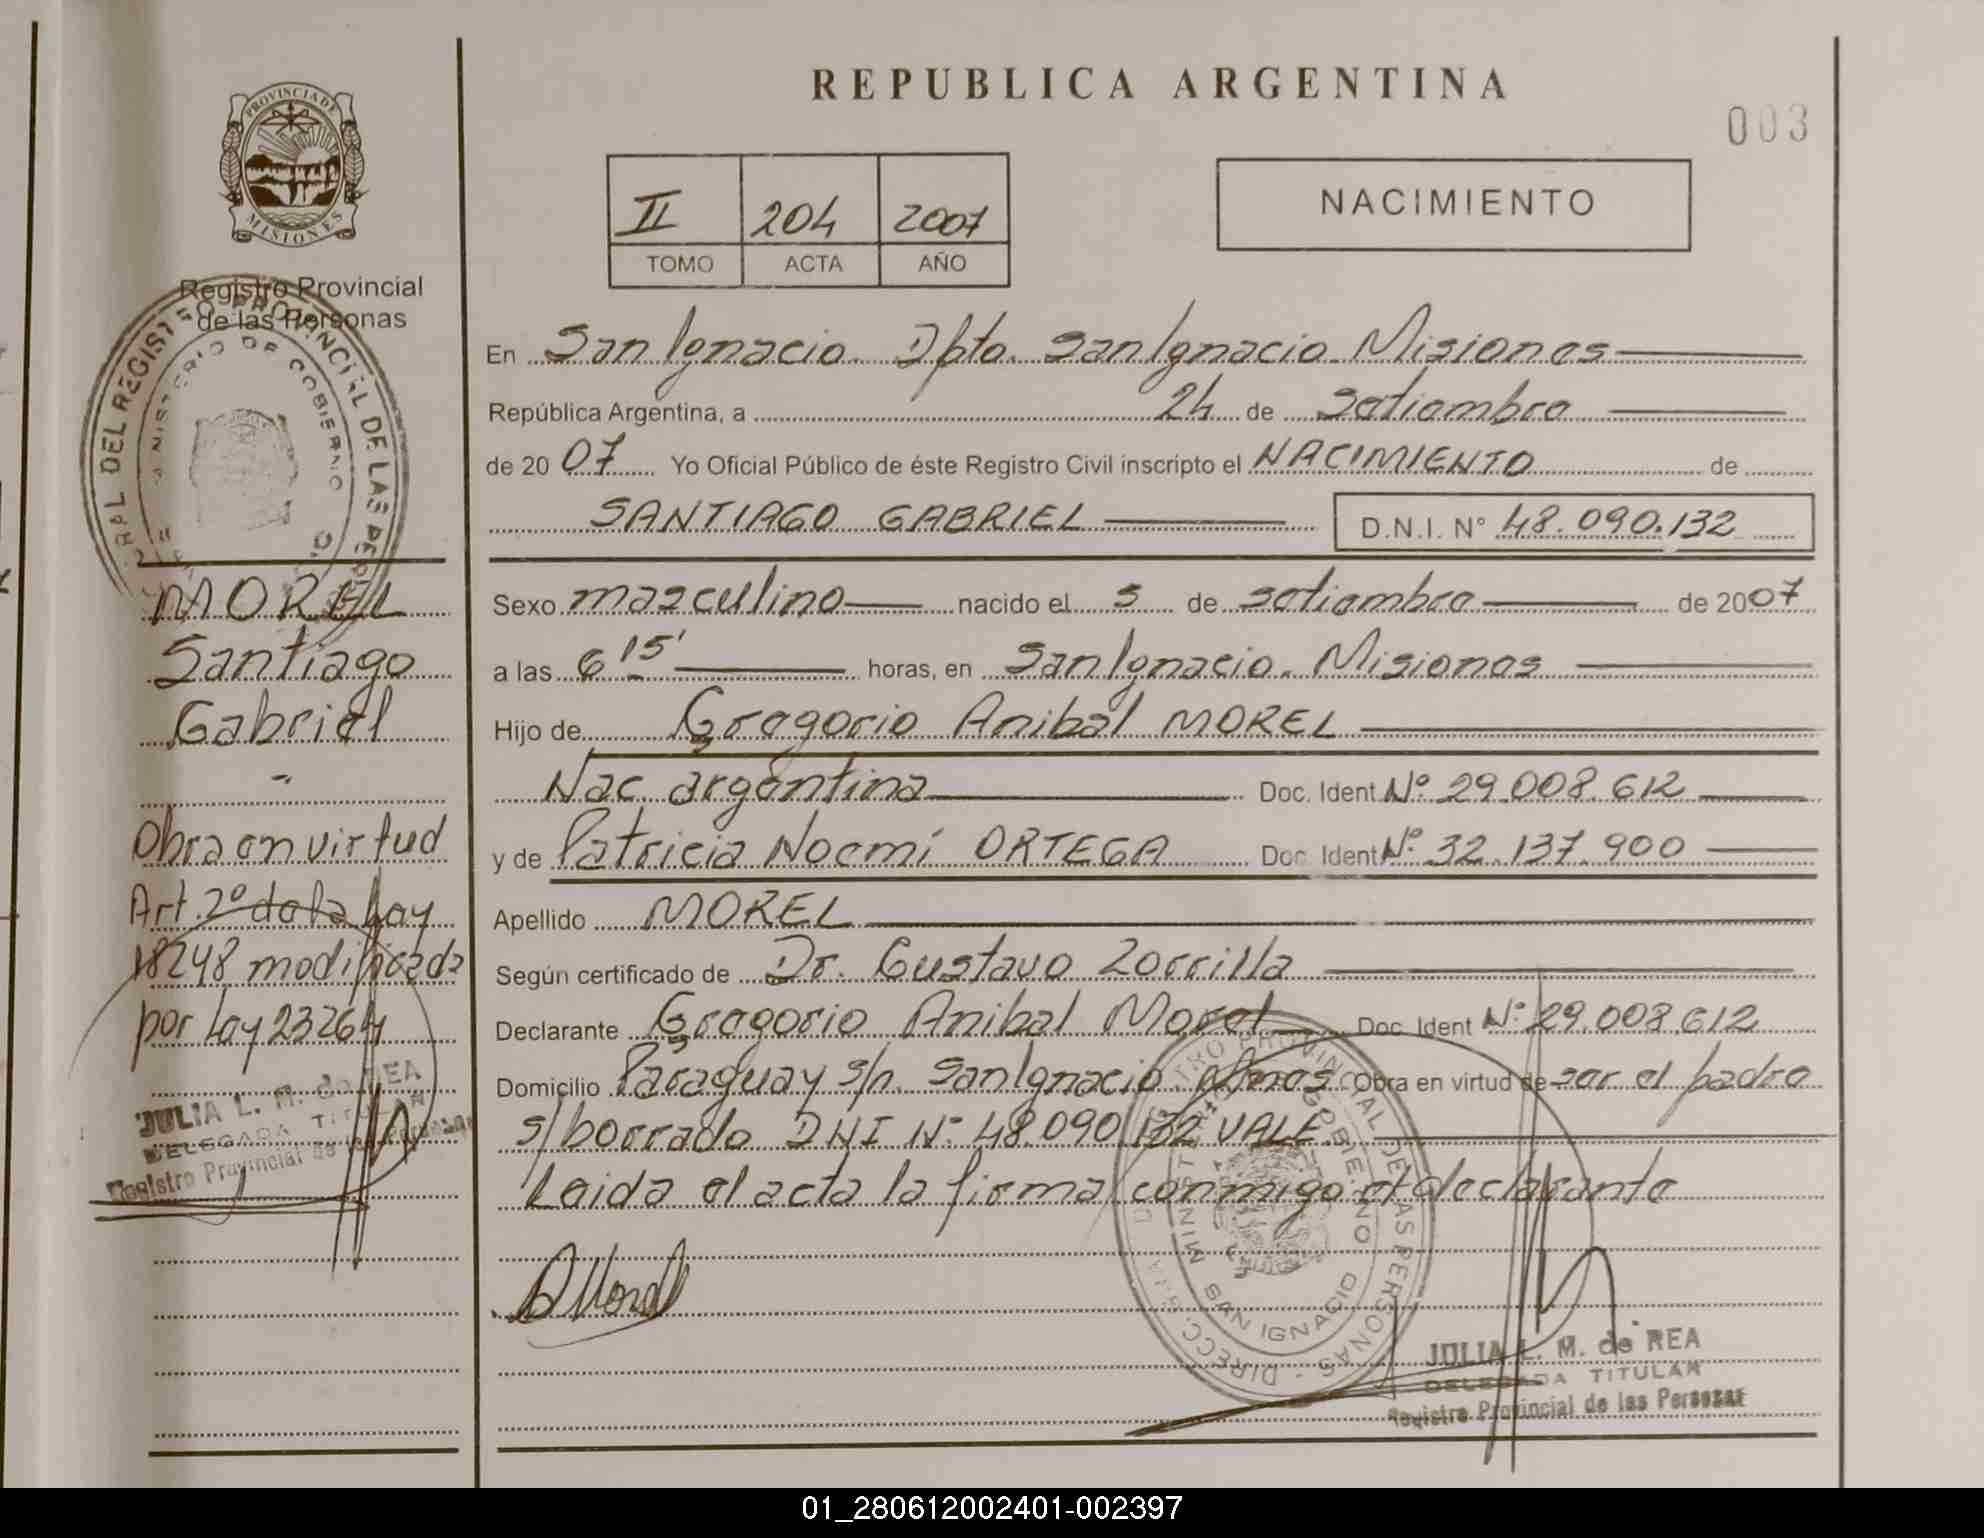 REPUBLICA ARGENTINA
003
PROVINCIA DE
MISIONES
Registro Provincial
de las Personas
II 204 2007
TOMO ACTA AÑO
NACIMIENTO
En San Ignacio. Dpto. San Ignacio Misiones
República Argentina, a 24 de Setiembre
de 2007 Yo Oficial Público de éste Registro Civil inscripto el NACIMIENTO de
SANTIAGO GABRIEL D.N.I. N° 48.090.132
Sexo masculino nacido el 5 de setiembre de 2007
a las 6 15' horas, en San Ignacio. Misiones
Hijo de Gregorio Anibal MOREL
Nac. argentina Doc. Ident N° 29.008.612
y de Patricia Noemí ORTEGA Doc. Ident N° 32.137.900
Apellido MOREL
Según certificado de Dr. Gustavo Zorrilla
Declarante Gregorio Anibal Morel Doc. Ident N° 29.008.612
Domicilio Paraguay s/n. San Ignacio Mnes Obra en virtud de ser el padre
s/borrado DNI N° 48.090.132 VALE.
Leida el acta la firma conmigo el declarante
MOREL
Santiago
Gabriel
Obra en virtud
Art. 2° de la Ley
18248 modificada
por Ley 23264
JULIA L. M. de REA
DELEGADA TITULAR
Registro Provincial de las Personas
SAN IGNACIO
JULIA L. M. de REA
DELEGADA TITULAR
Registro Provincial de las Personas
01_280612002401-002397